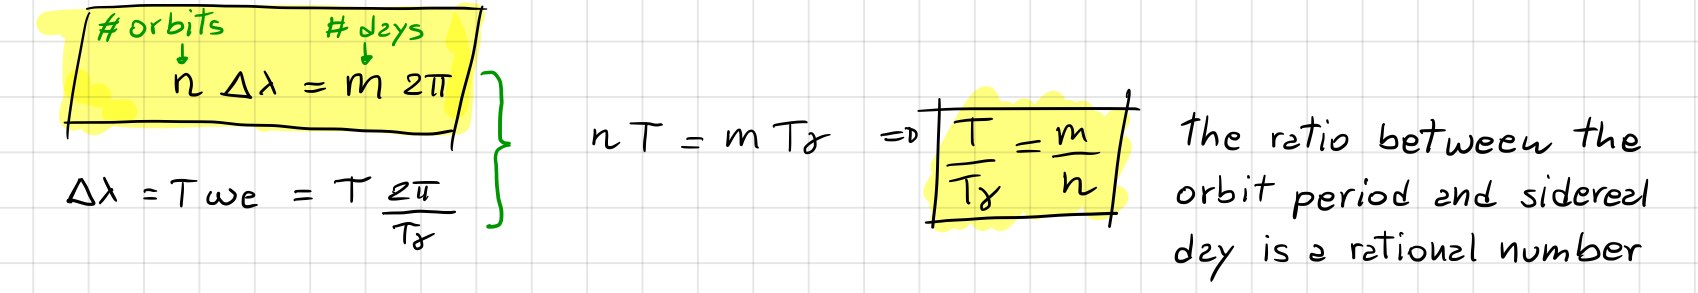 # orbits # days
↓ ↓
n Δλ = m 2π
Δλ = T ωe = T 2π/Tγ
n T = m Tγ ⇒ T/Tγ = m/n
the ratio between the
orbit period and sidereal
day is a rational number